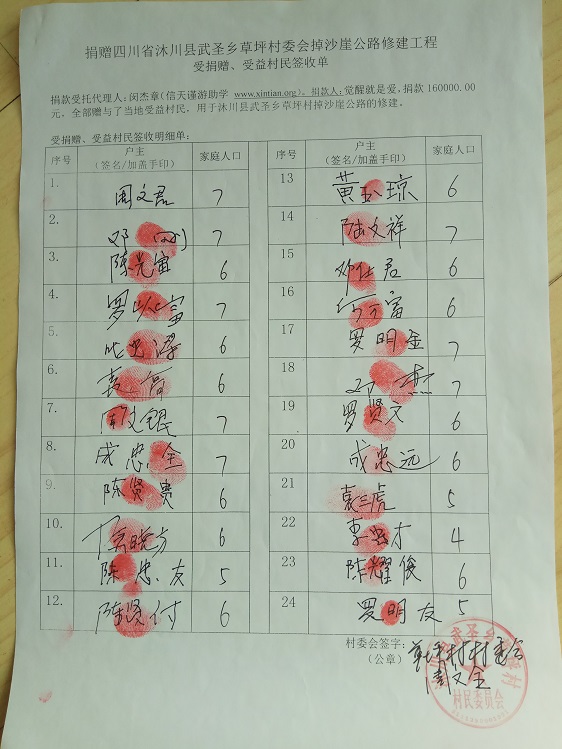 捐赠四川省沐川县武圣乡草坪村委会掉沙崖公路修建工程
受捐赠、受益村民签收单
捐款受托代理人:闵杰章(信天谨游助学 www.xintian.org)。捐款人:觉醒就是爱,捐款 160000.00
元,全部赠与了当地受益村民,用于沐川县武圣乡草坪村掉沙崖公路的修建。
受捐赠、受益村民签收明细单:
序号 户主 家庭人口
(签名/加盖手印)
1. 周文君 7
2. 邓 7
3. 陈光宙 6
4. 罗 富 7
5. 6
6. 袁 高 6
7. 锟 7
8. 成忠全 7
9. 陈贤贵 6
10. 晓方 6
11. 陈忠友 5
12. 陈贤付 6
序号 户主 家庭人口
(签名/加盖手印)
13 黄 琼 6
14 陆文祥 7
15 邓仕君 6
16 富 6
17 罗明金 7
18 7
19 罗贤文 6
20 成忠远 6
21 袁三虎 5
22 李 才 4
23 陈耀俊 6
24 罗明友 5
村委会签字: 草坪村村委会
(公章) 周文全
村民委员会